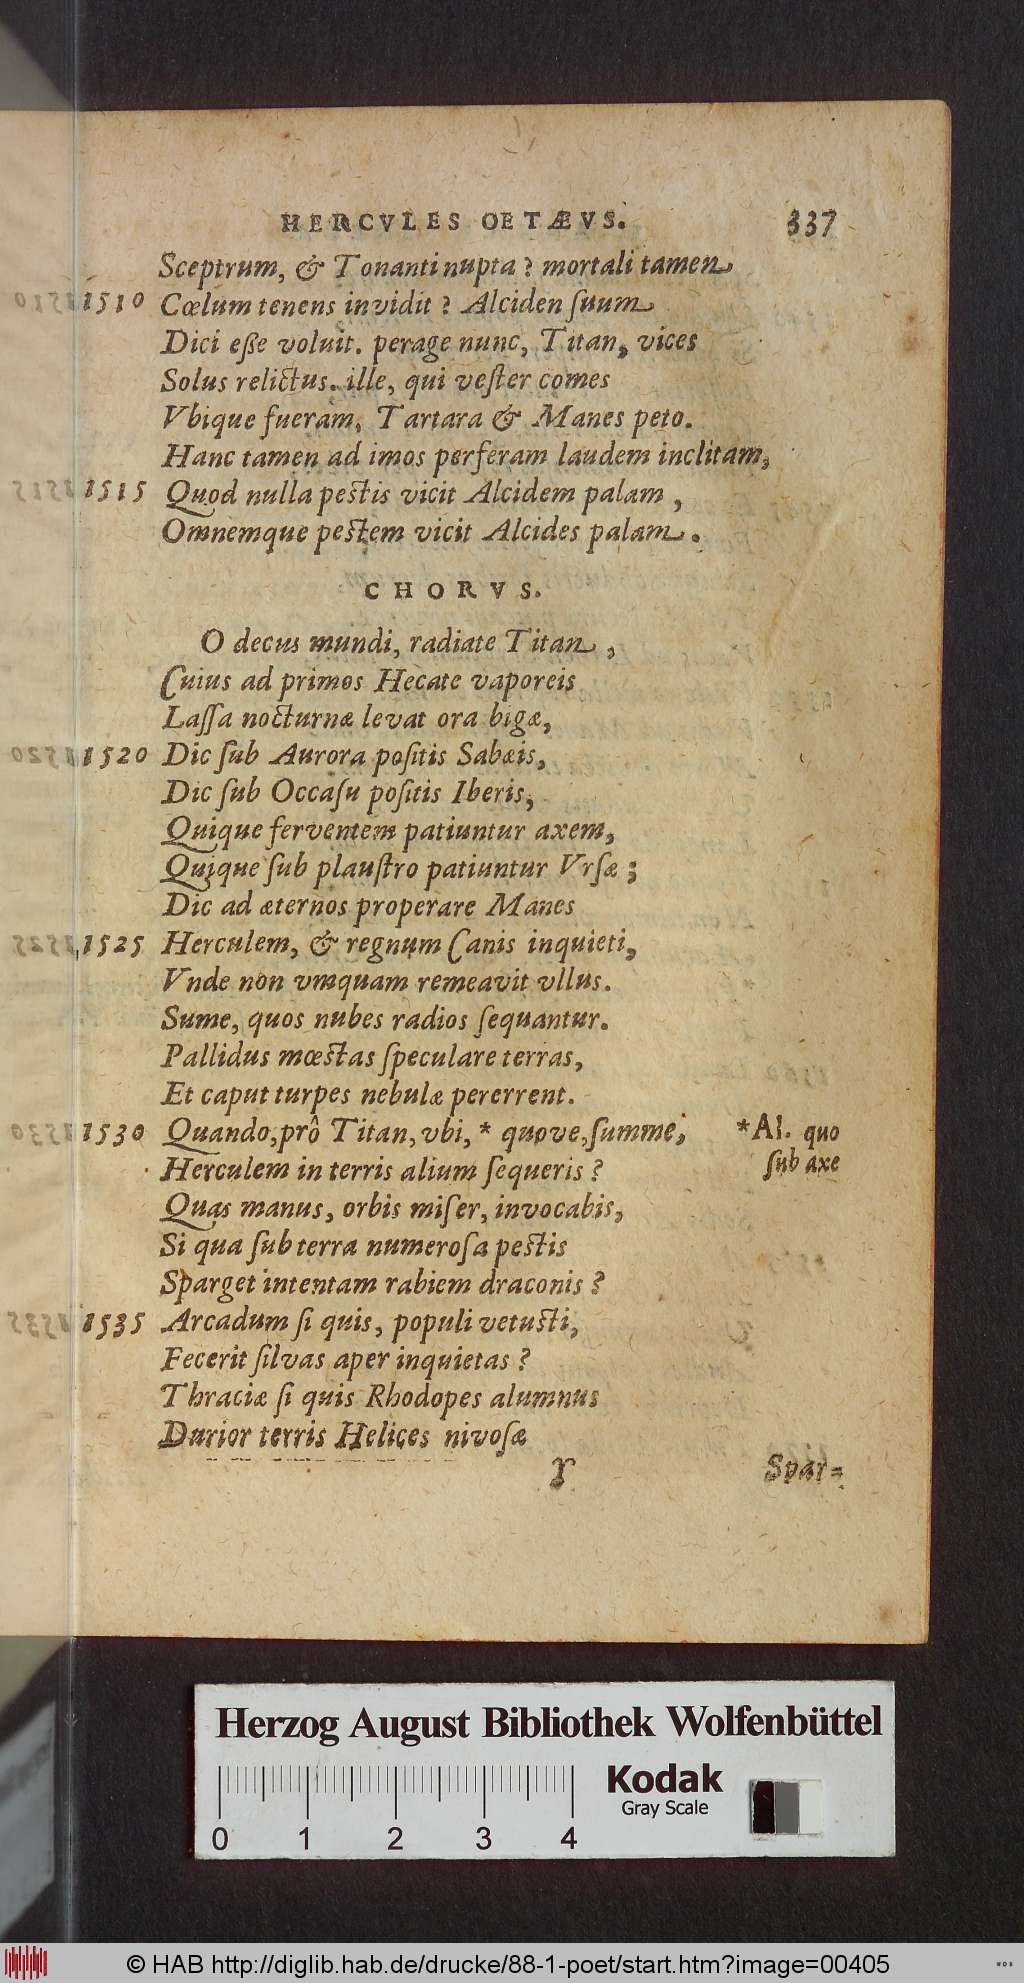 HERCVLES OETÆVS. 337
Sceptrum, & Tonanti nupta? mortali tamen
1510 Cœlum tenens invidit? Alciden ſuum
Dici eße voluit. perage nunc, Titan, vices
Solus relictus. ille, qui veſter comes
Vbique fueram, Tartara & Manes peto.
Hanc tamen ad imos perferam laudem inclitam,
1515 Quod nulla peſtis vicit Alcidem palam,
Omnemque peſtem vicit Alcides palam.
CHORVS.
O decus mundi, radiate Titan,
Cuius ad primos Hecate vaporeis
Laſſa nocturnæ levat ora bigæ,
1520 Dic ſub Aurora poſitis Sabæis,
Dic ſub Occaſu poſitis Iberis,
Quique ferventem patiuntur axem,
Quique ſub plauſtro patiuntur Vrſæ;
Dic ad æternos properare Manes
1525 Herculem, & regnum Canis inquieti,
Vnde non vmquam remeavit vllus.
Sume, quos nubes radios ſequantur.
Pallidus mœſtas ſpeculare terras,
Et caput turpes nebulæ pererrent.
1530 Quando, prô Titan, vbi, * quove, ſumme, *Al. quo
ſub axe
Herculem in terris alium ſequeris?
Quas manus, orbis miſer, invocabis,
Si qua ſub terra numeroſa peſtis
Sparget intentam rabiem draconis?
1535 Arcadum ſi quis, populi vetuſti,
Fecerit ſilvas aper inquietas?
Thraciæ ſi quis Rhodopes alumnus
Durior terris Helices nivoſæ
Y Spar=
Herzog August Bibliothek Wolfenbüttel
Kodak
Gray Scale
0 1 2 3 4
© HAB http://diglib.hab.de/drucke/88-1-poet/start.htm?image=00405